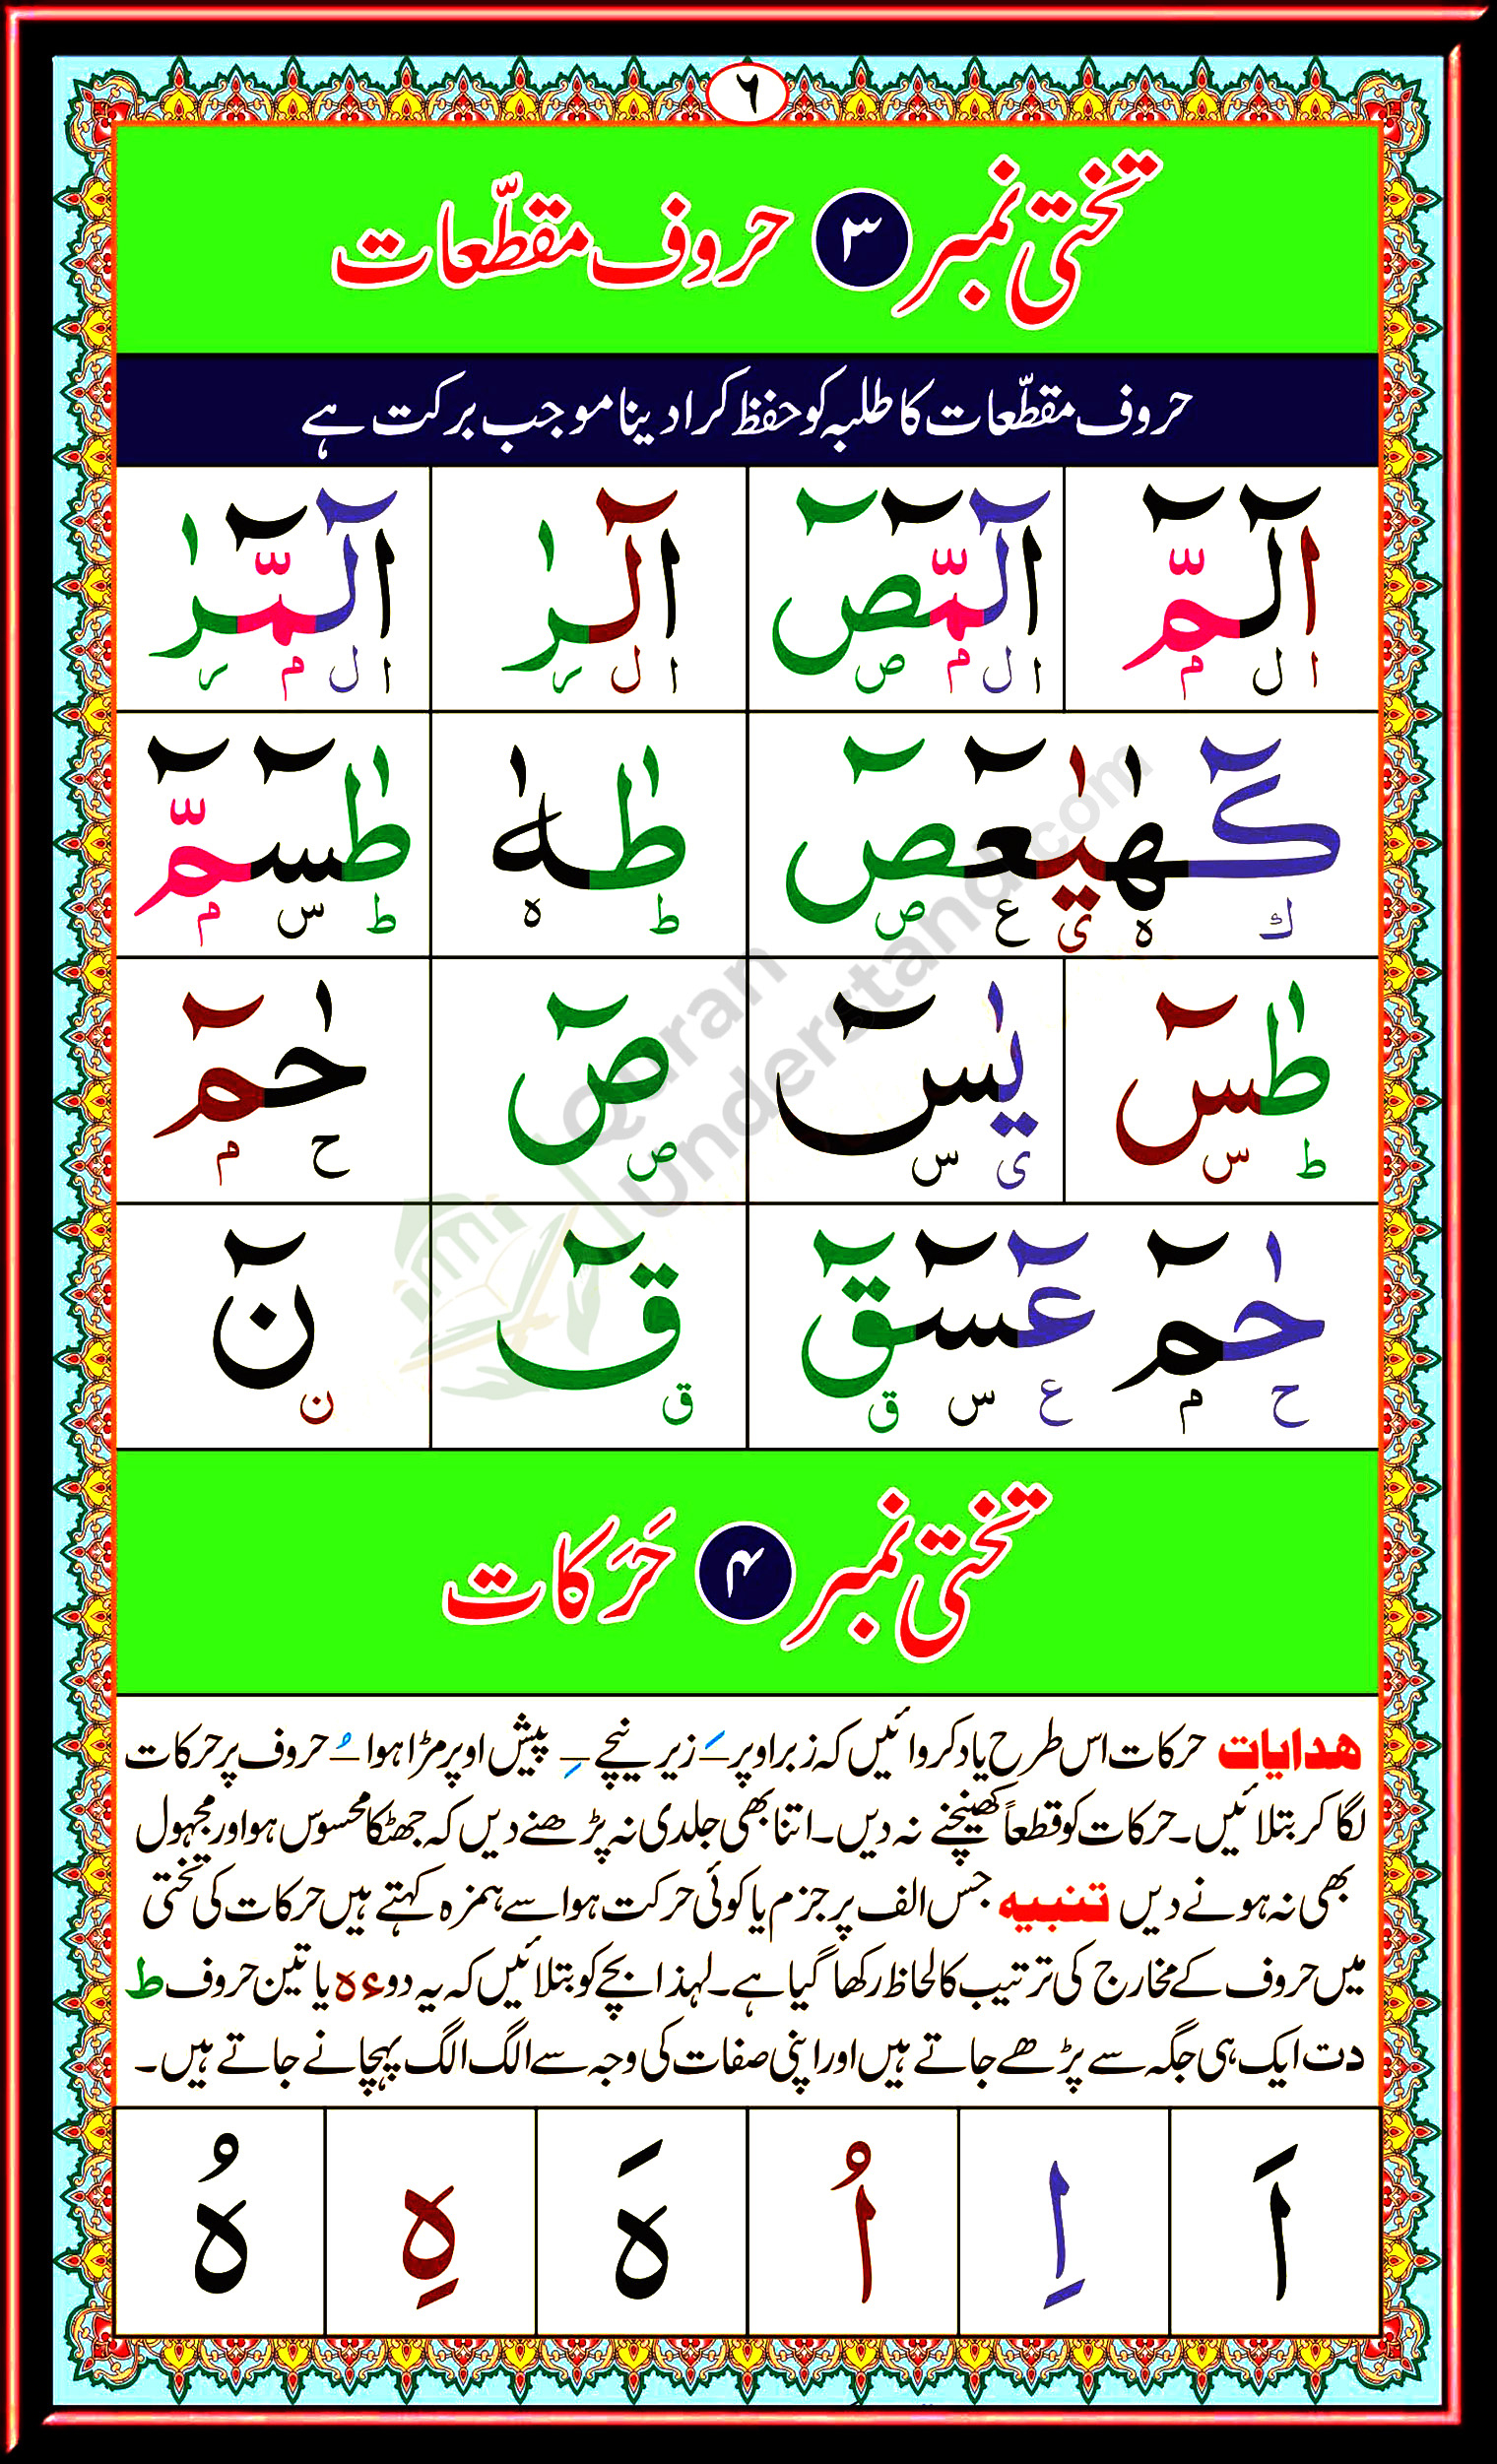 ٦
تختی نمبر ۳ حروف مقطّعات
حروف مقطّعات کا طلبہ کو حفظ کرا دینا موجب برکت ہے
الٓمّٓ الٓمّٓصٓ الٓرٰ الٓمّٓرٰ
ا ل م ا ل م ص ا ل ر ا ل م ر
كٓهٰيٰعٓصٓ طٰهٰ طٰسٓمّٓ
ك ه ی ع ص ط ه ط س م
طٰسٓ يٰسٓ صٓ حٰمٓ
ط س ی س ص ح م
حٰمٓ عٓسٓقٓ قٓ نٓ
ح م ع س ق ق ن
تختی نمبر ۴ حَرَکات
هدایات حرکات اس طرح یاد کروائیں کہ زبر اوپر ـَ زیر نیچے ـِ پیش اوپر مڑا ہوا ـُ حروف پر حرکات
لگا کر بتلائیں۔ حرکات کو قطعاً کھینچنے نہ دیں۔ اتنا بھی جلدی نہ پڑھنے دیں کہ جھٹکا محسوس ہو اور مجہول
بھی نہ ہونے دیں تنبیه جس الف پر جزم یا کوئی حرکت ہو اسے ہمزہ کہتے ہیں حرکات کی تختی
میں حروف کے مخارج کی ترتیب کا لحاظ رکھا گیا ہے۔ لہذا بچے کو بتلائیں کہ یہ دو ء ہ یا تین حروف ط
د ت ایک ہی جگہ سے پڑھے جاتے ہیں اور اپنی صفات کی وجہ سے الگ الگ پہچانے جاتے ہیں۔
اَ اِ اُ هَ هِ هُ
Quran
Understand.com